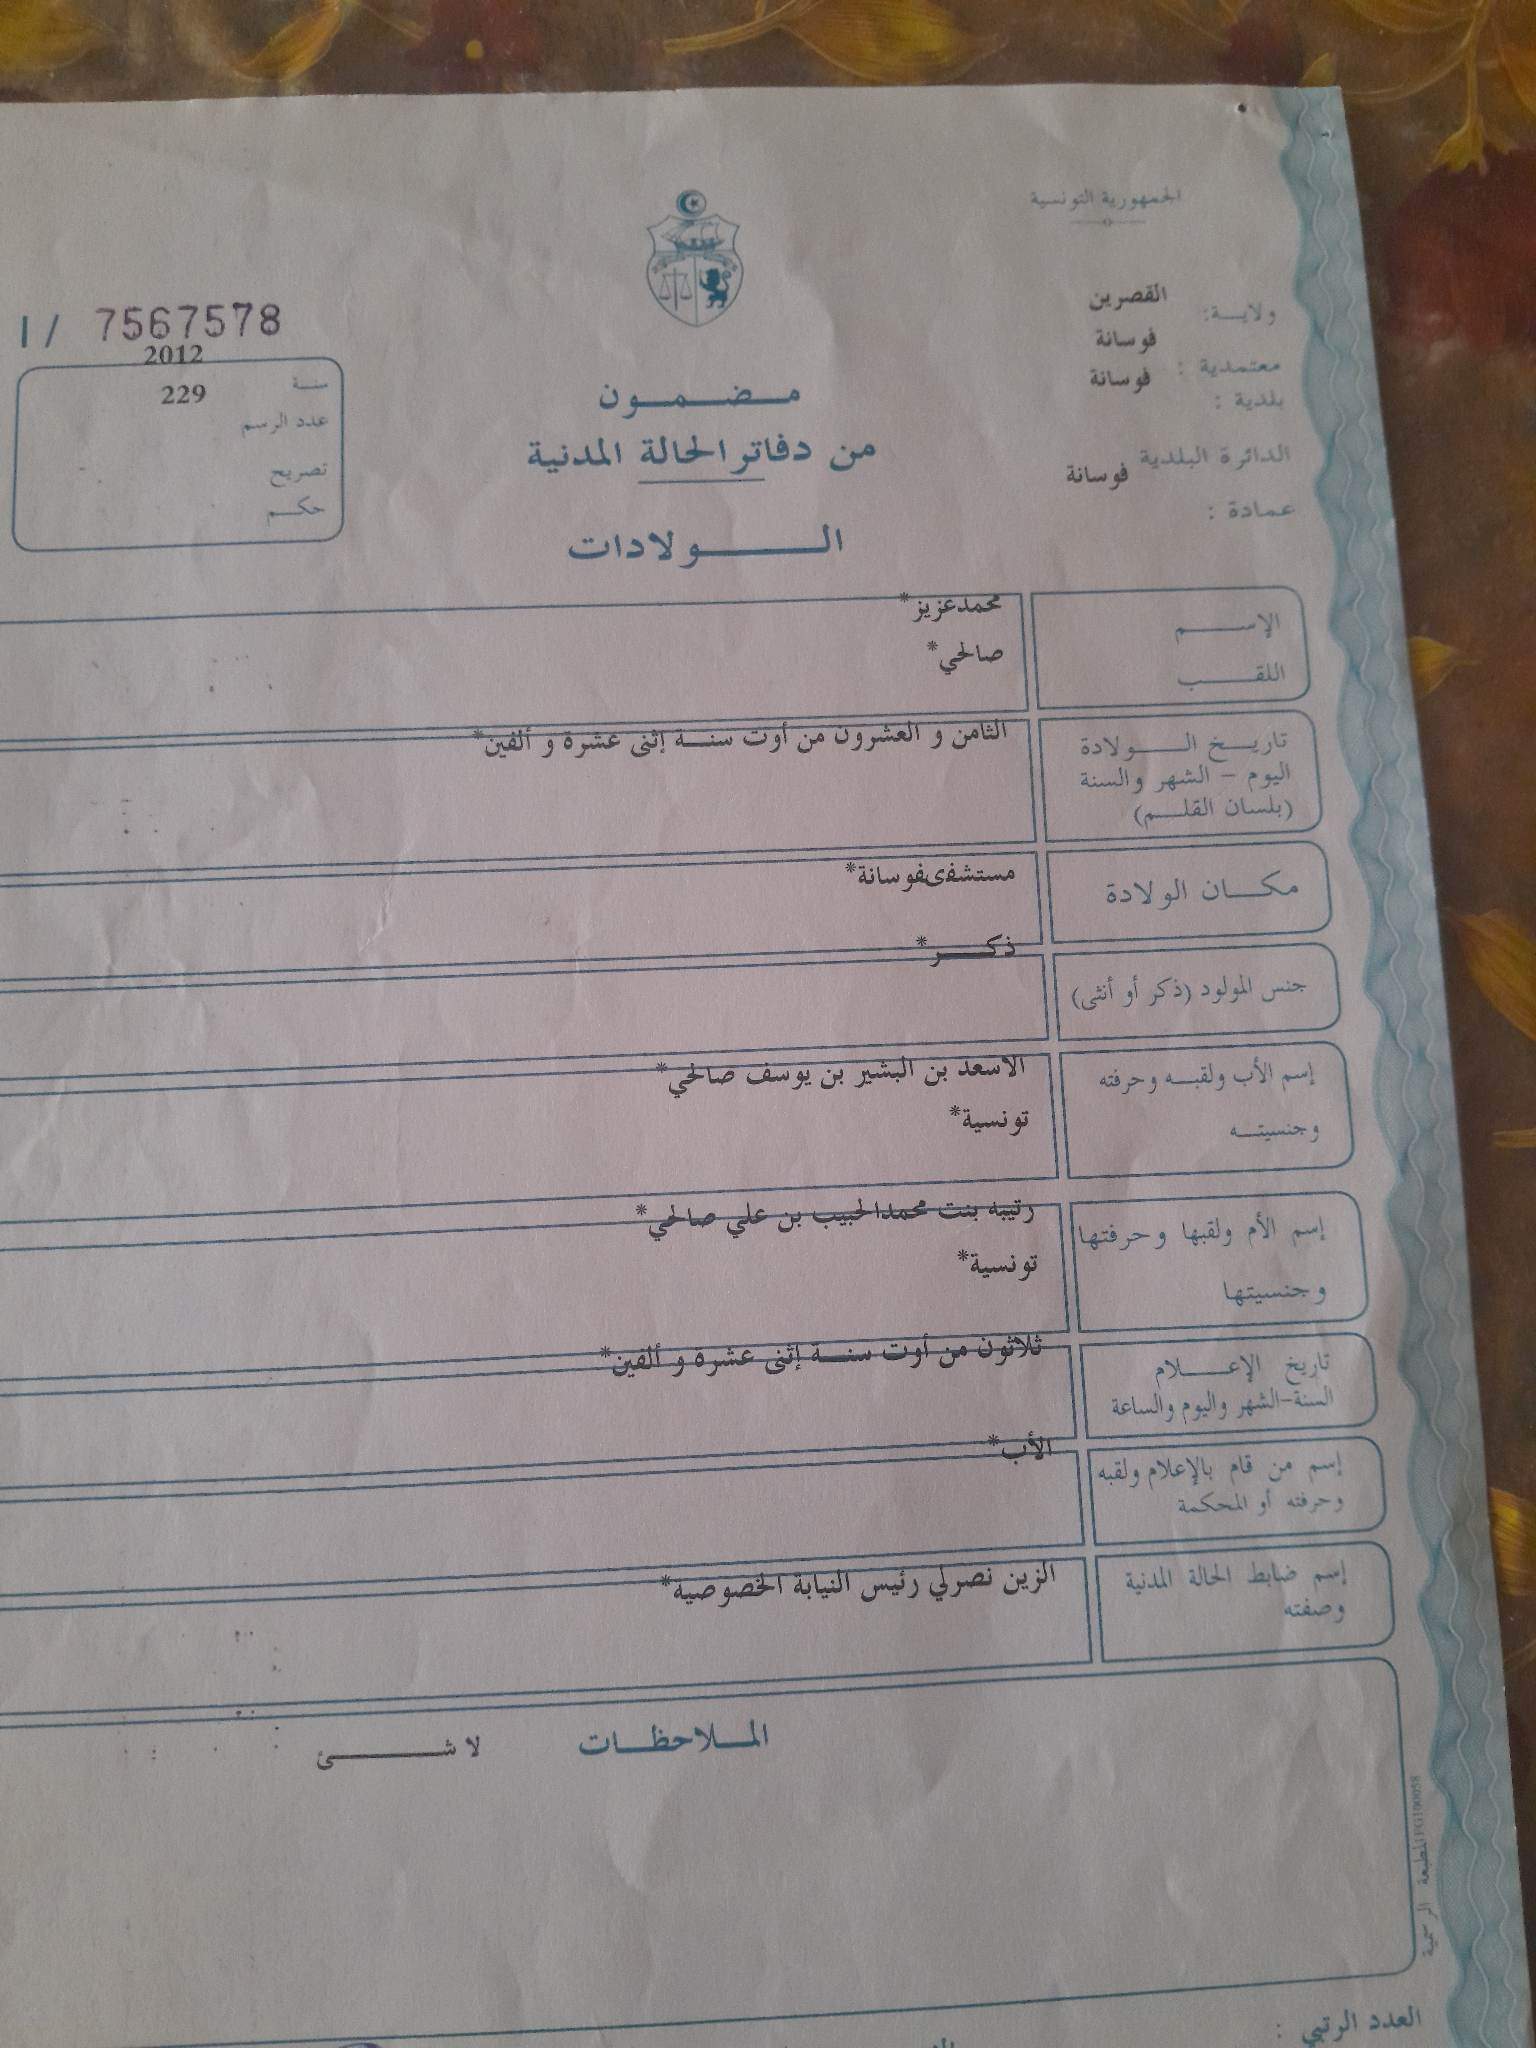 الجمهورية التونسية
ولايـــة: القصرين
معتمدية : فوسانة
بلدية : فوسانة
الدائرة البلدية فوسانة
عمادة :
I / 7567578
سنة 2012
عدد الرسم 229
تصريح
حكم
مضمون
من دفاتر الحالة المدنية
الولادات
الإسم محمدعزيز*
اللقب صالحي*
تاريخ الولادة الثامن و العشرون من أوت سنة إثنى عشرة و ألفين*
اليوم - الشهر والسنة
(بلسان القلم)
مكان الولادة مستشفى‌فوسانة*
جنس المولود (ذكر أو أنثى) ذكر*
إسم الأب ولقبه وحرفته الاسعد بن البشير بن يوسف صالحي*
وجنسيته تونسية*
إسم الأم ولقبها وحرفتها رتيبه بنت محمدالحبيب بن علي صالحي*
وجنسيتها تونسية*
تاريخ الإعلام ثلاثون من أوت سنة إثنى عشرة و ألفين*
السنة-الشهر واليوم والساعة
إسم من قام بالإعلام ولقبه الأب*
وحرفته أو المحكمة
إسم ضابط الحالة المدنية الزين نصرلي رئيس النيابة الخصوصية*
وصفته
الملاحظات لا شئ
المطبعة الرسمية
العدد الرتبي :